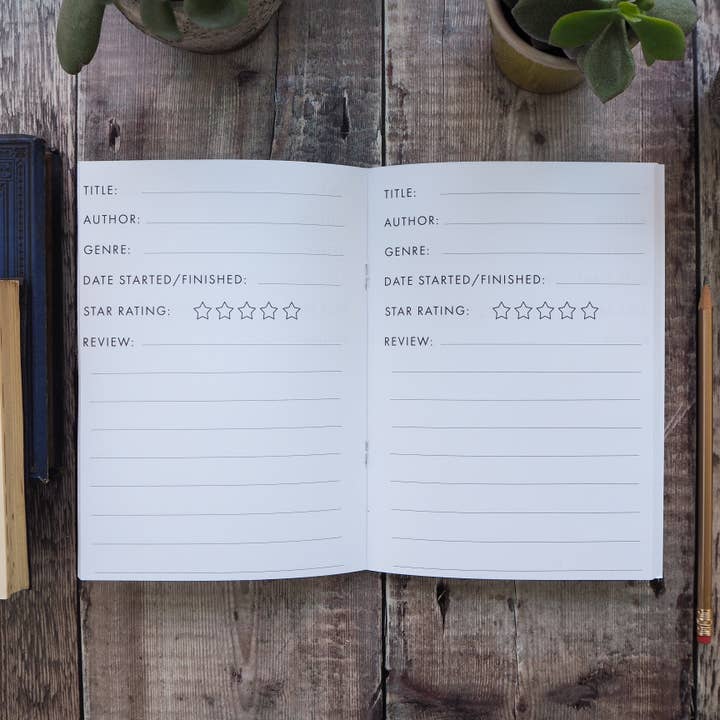 TITLE:
AUTHOR:
GENRE:
DATE STARTED/FINISHED:
STAR RATING:
REVIEW:
TITLE:
AUTHOR:
GENRE:
DATE STARTED/FINISHED:
STAR RATING:
REVIEW: